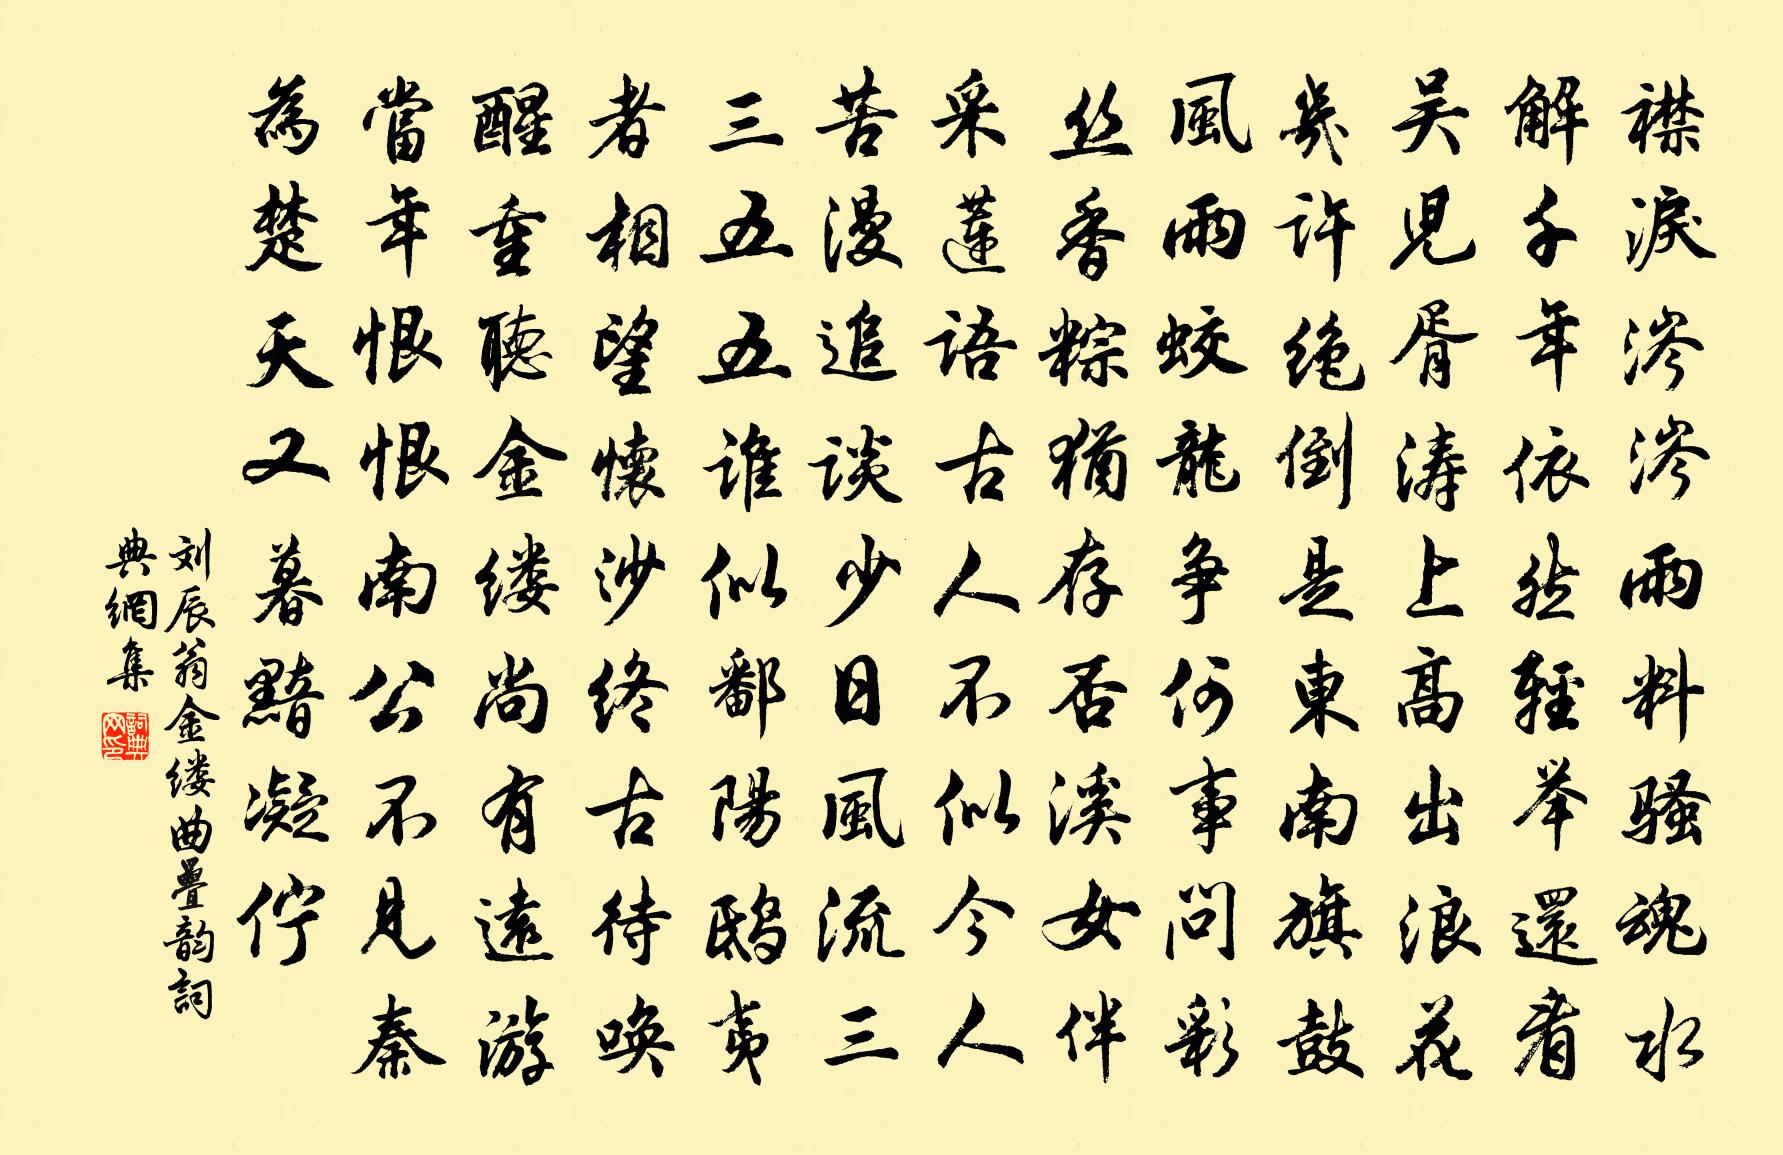 襟淚涔涔雨料騷魂水
解千年依然輕举還看
吴兒胥涛上高出浪花
幾許绝倒是東南旗鼓
風雨蛟龍争何事問彩
丝香粽猶存否溪女伴
采蓮語古人不似今人
苦漫追谈少日風流三
三五五谁似鄱陽鴟夷
者相望懷沙终古待唤
醒重聽金缕尚有遠游
當年恨恨南公不見秦
為楚天又暮黯凝佇
刘辰翁金缕曲疊韵詞
典網集
詞典网印